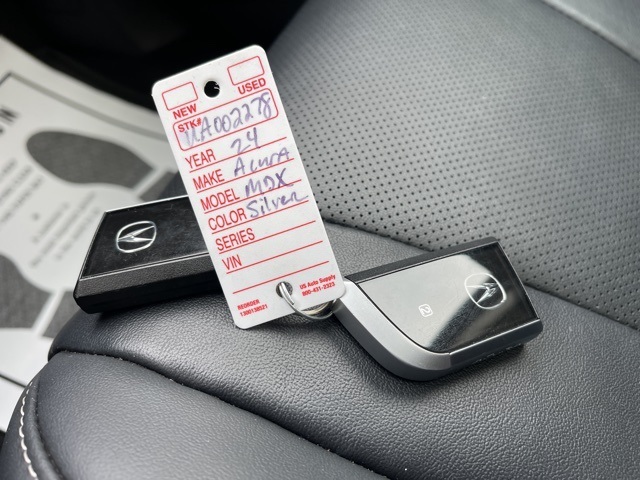 NEW USED
STK# RA002278
YEAR 24
MAKE Acura
MODEL MDX
COLOR Silver
SERIES
VIN
REORDER
1300138021
US Auto Supply
800-431-2323